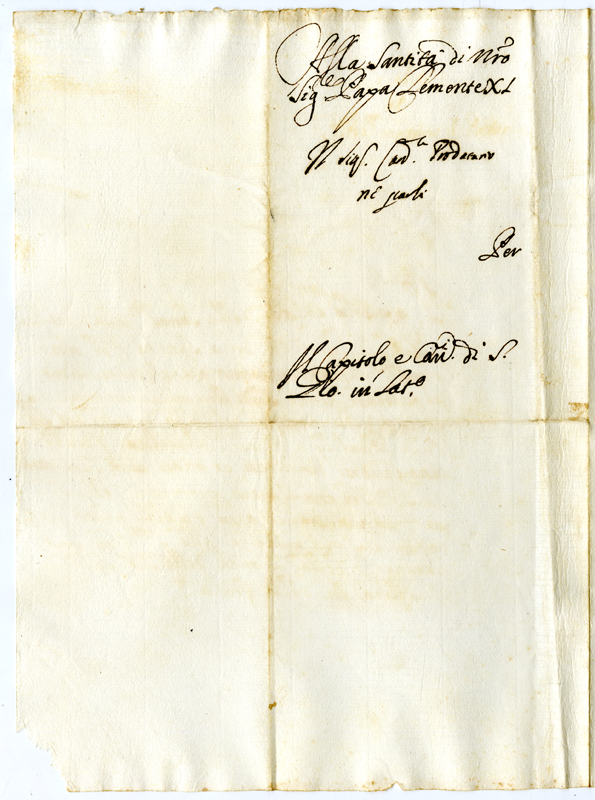 Alla Santità di Nrõ
Sig.re Papa Clemente XI
Il Sig.r Card.le Prodatario
ne parli
Per
Il Capitolo e Can.ci di S.
Gio. in Lat.o